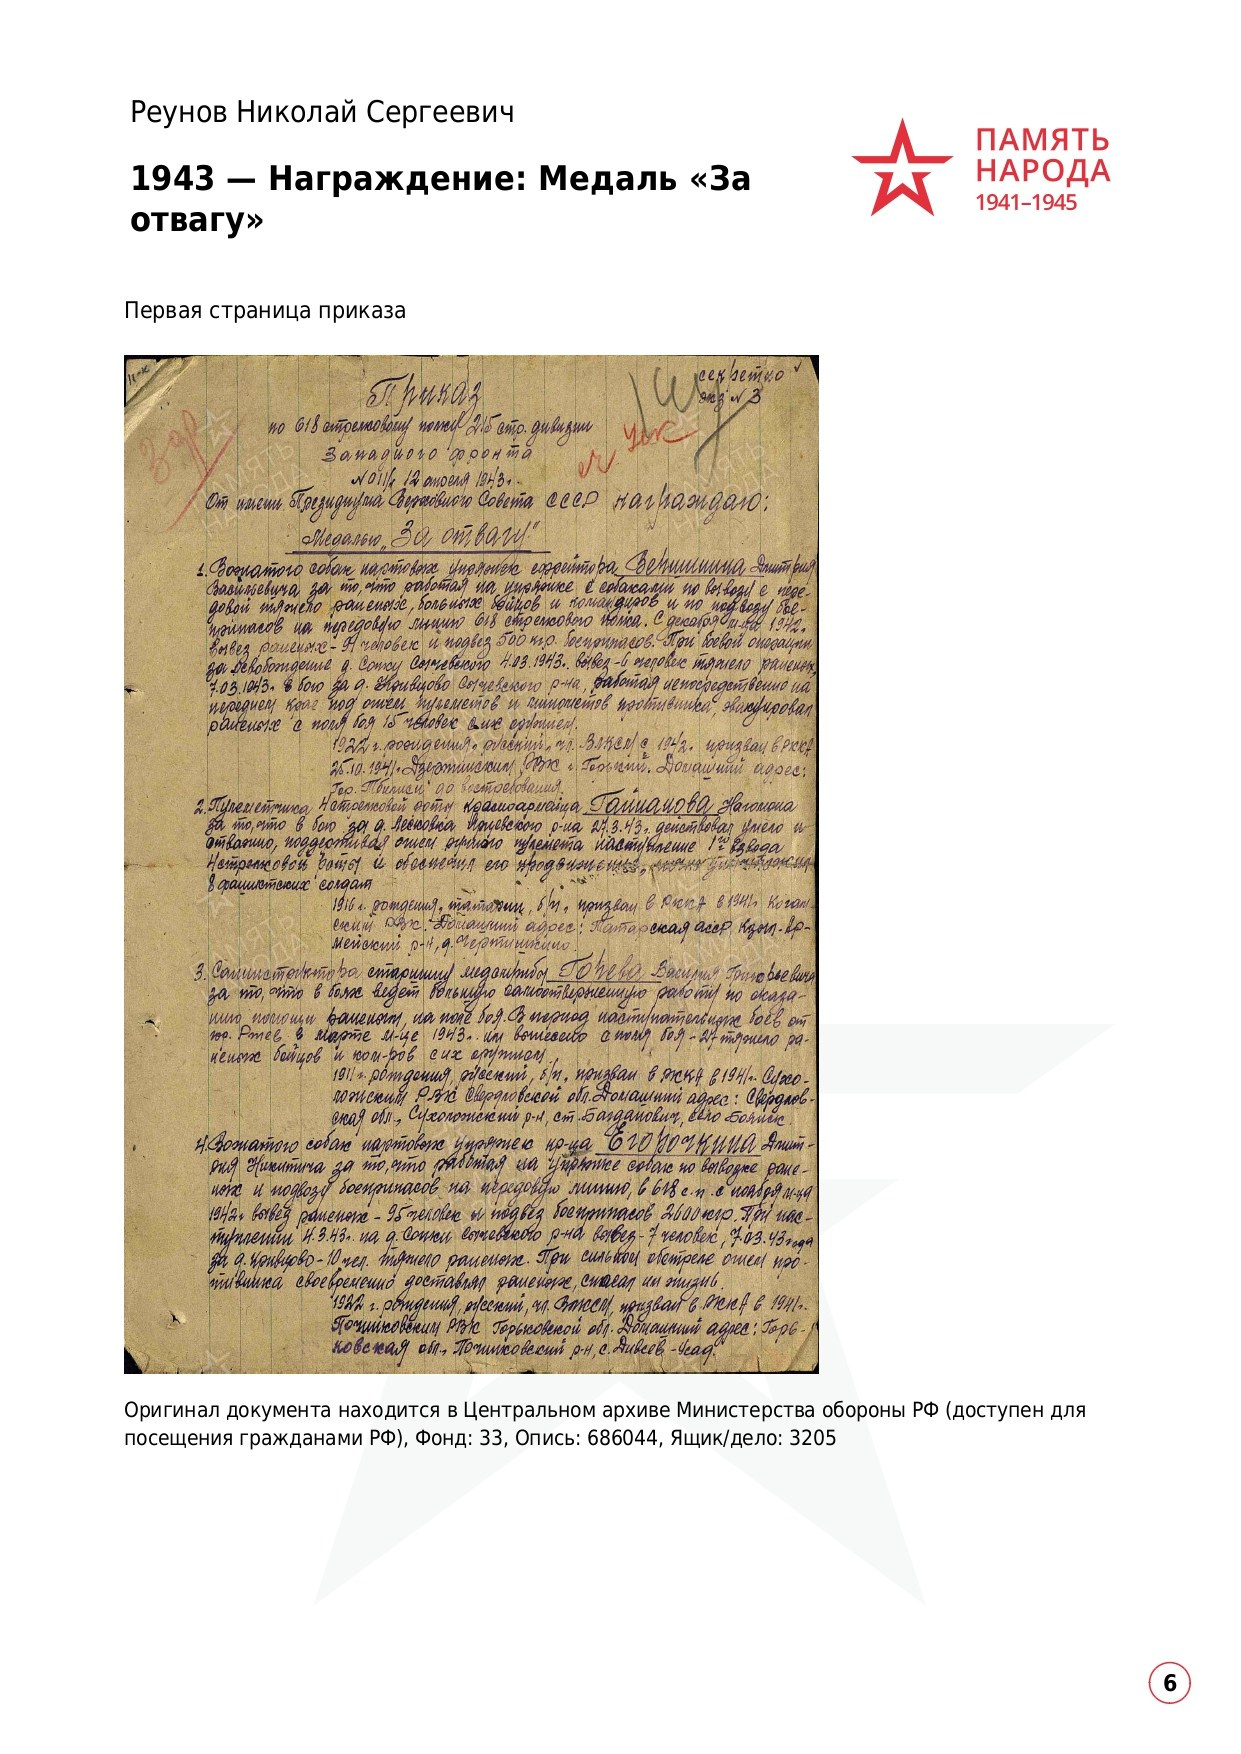 Реунов Николай Сергеевич
1943 — Награждение: Медаль «За
отвагу»
ПАМЯТЬ
НАРОДА
1941–1945
Первая страница приказа
секретно
экз №3
Приказ
по 618 стрелковому полку 215 стр. дивизии
Западного фронта
12 апреля 1943г.
От имени Президиума Верховного Совета СССР награждаю:
Медалью „За отвагу"
1. Вожатого собак нартовых упряжек ефрейтора Вершинина Дмитрия
Васильевича за то, что работая на упряжке с собаками по вывозу с пере-
довой тяжело раненых, больных бойцов и командиров и по подвозу бое-
припасов на передовую линию 618 стрелкового полка. С декабря м-ца 1942г.
вывез раненых - человек и подвез 500 кгр. боеприпасов. При боевой операции
за освобождение д. Сопку Сычевского 4.03.1943г. вывез - 6 человек тяжело раненых,
7.03.1943г. в бою за д. Кривцово Сычевского р-на, работая непосредственно на
переднем крае под огнем пулеметов и минометов противника, эвакуировал
раненых с поля боя 15 человек с их оружием.
1922 г. рождения, русский, чл. ВЛКСМ с 1942г. призван в РККА
25.10.1941г. Дзержинским РВК г. Горький. Домашний адрес:
Гор. Тбилиси до востребования.
2. Пулеметчика 4 стрелковой роты красноармейца
за то, что в бою за д. 27.3.43г. действовал умело и
отважно, поддерживая огнем ручного пулемета наступление 1го взвода
4 стрелковой роты и обеспечил его продвижение,
8 фашистских солдат
1916 г. рождения, татарин, б/п, призван в РККА в 1941г.
РВК. Домашний адрес: Татарская АССР Кзыл-Ар-
мейский р-н, д.
3. Санинструктора старшину медслужбы Василия Григорьевича
за то, что в боях ведет большую самоотверженную работу по оказа-
нию помощи раненым на поле боя. В период наступательных боев от
гор. Ржев в марте м-це 1943г. им вынесено с поля боя - 27 тяжело ра-
неных бойцов и ком-ров с их оружием.
1911 г. рождения, русский, б/п, призван в РККА в 1941г. Сухо-
ложским РВК Свердловской обл. Домашний адрес: Свердлов-
ская обл., Сухоложский р-н, ст. Богданович, село
4. Вожатого собак нартовых упряжек кр-ца Егорочкина Дмит-
рия Никитича за то, что работая на упряжке собак по вывозке ране-
ных и подвозу боеприпасов на передовую линию, в 618 с.п. с ноября м-ца
1942г. вывез раненых - 95 человек и подвез боеприпасов 2600 кгр. При нас-
туплении 4.3.43г. на д. Сопки Сычевского р-на вывез - 7 человек, 7.03.43 года
за д. Кривцово - 10 чел. тяжело раненых. При сильном обстреле огнем про-
тивника своевременно доставлял раненых, спасал им жизнь.
1922 г. рождения, русский, чл. ВЛКСМ, призван в РККА в 1941г.
Починковским РВК Горьковской обл. Домашний адрес: Горь-
ковская обл., Починковский р-н, с. Дивеев-Усад.
Оригинал документа находится в Центральном архиве Министерства обороны РФ (доступен для
посещения гражданами РФ), Фонд: 33, Опись: 686044, Ящик/дело: 3205
6